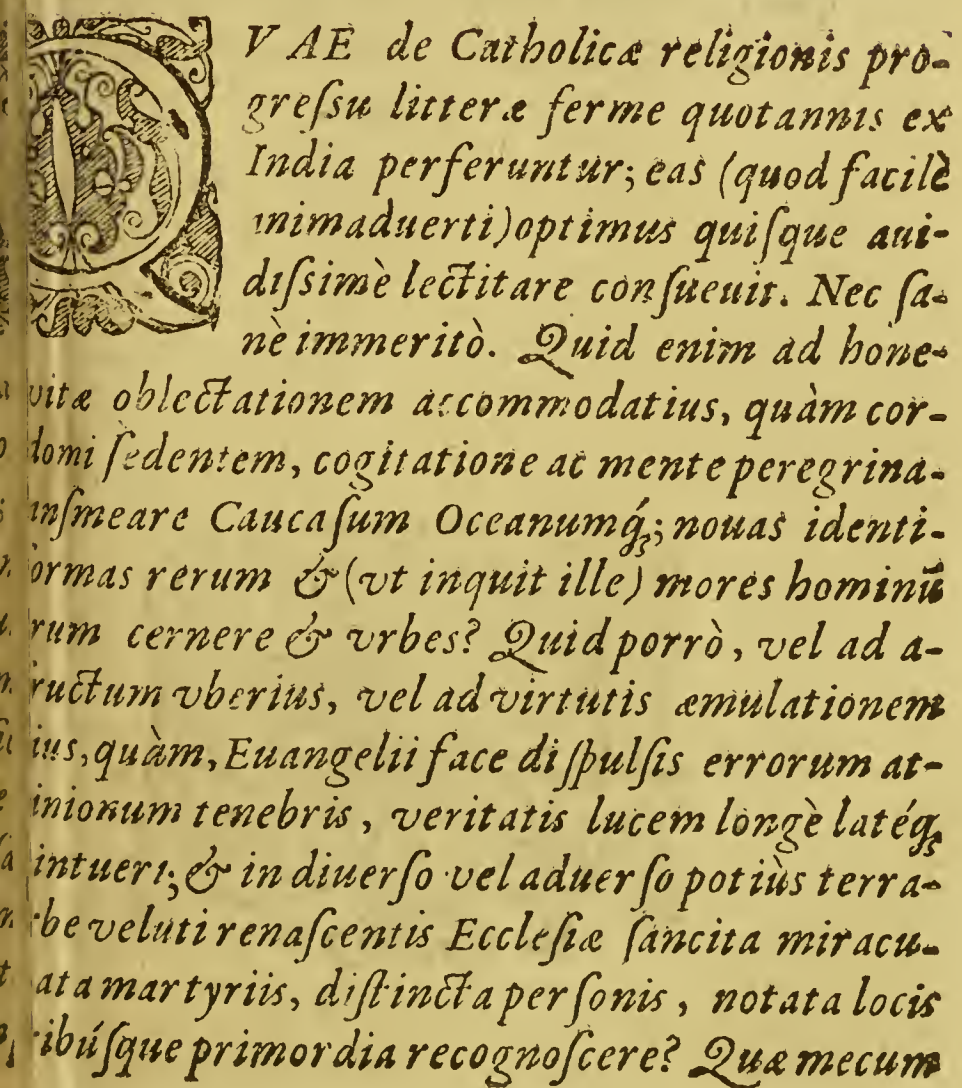 QVAE de Catholicæ religionis pro-
greſsu litteræ ferme quotannis ex
India perferuntur; eas (quod facilè
inimaduerti) optimus quiſque aui-
diſsimè lectitare conſueuit. Nec ſa-
nè immeritò. Quid enim ad hone-
vitæ oblectationem accommodatius, quàm cor-
domi ſedentem, cogitatione ac mente peregrina-
nſmeare Caucaſum Oceanumq́;; nouas identi-
ormas rerum & (vt inquit ille) mores hominū
rum cernere & vrbes? Quid porrò, vel ad a-
ructum vberius, vel ad virtutis æmulationem
ius, quàm, Euangelii face diſpulſis errorum at-
inionum tenebris, veritatis lucem longè latéq;
intueri; & in diuerſo vel aduerſo potiùs terra-
rbe veluti renaſcentis Eccleſiæ ſancita miracu-
ata martyriis, diſtincta perſonis, notata locis
ribúſque primordia recognoſcere? Quæ mecum